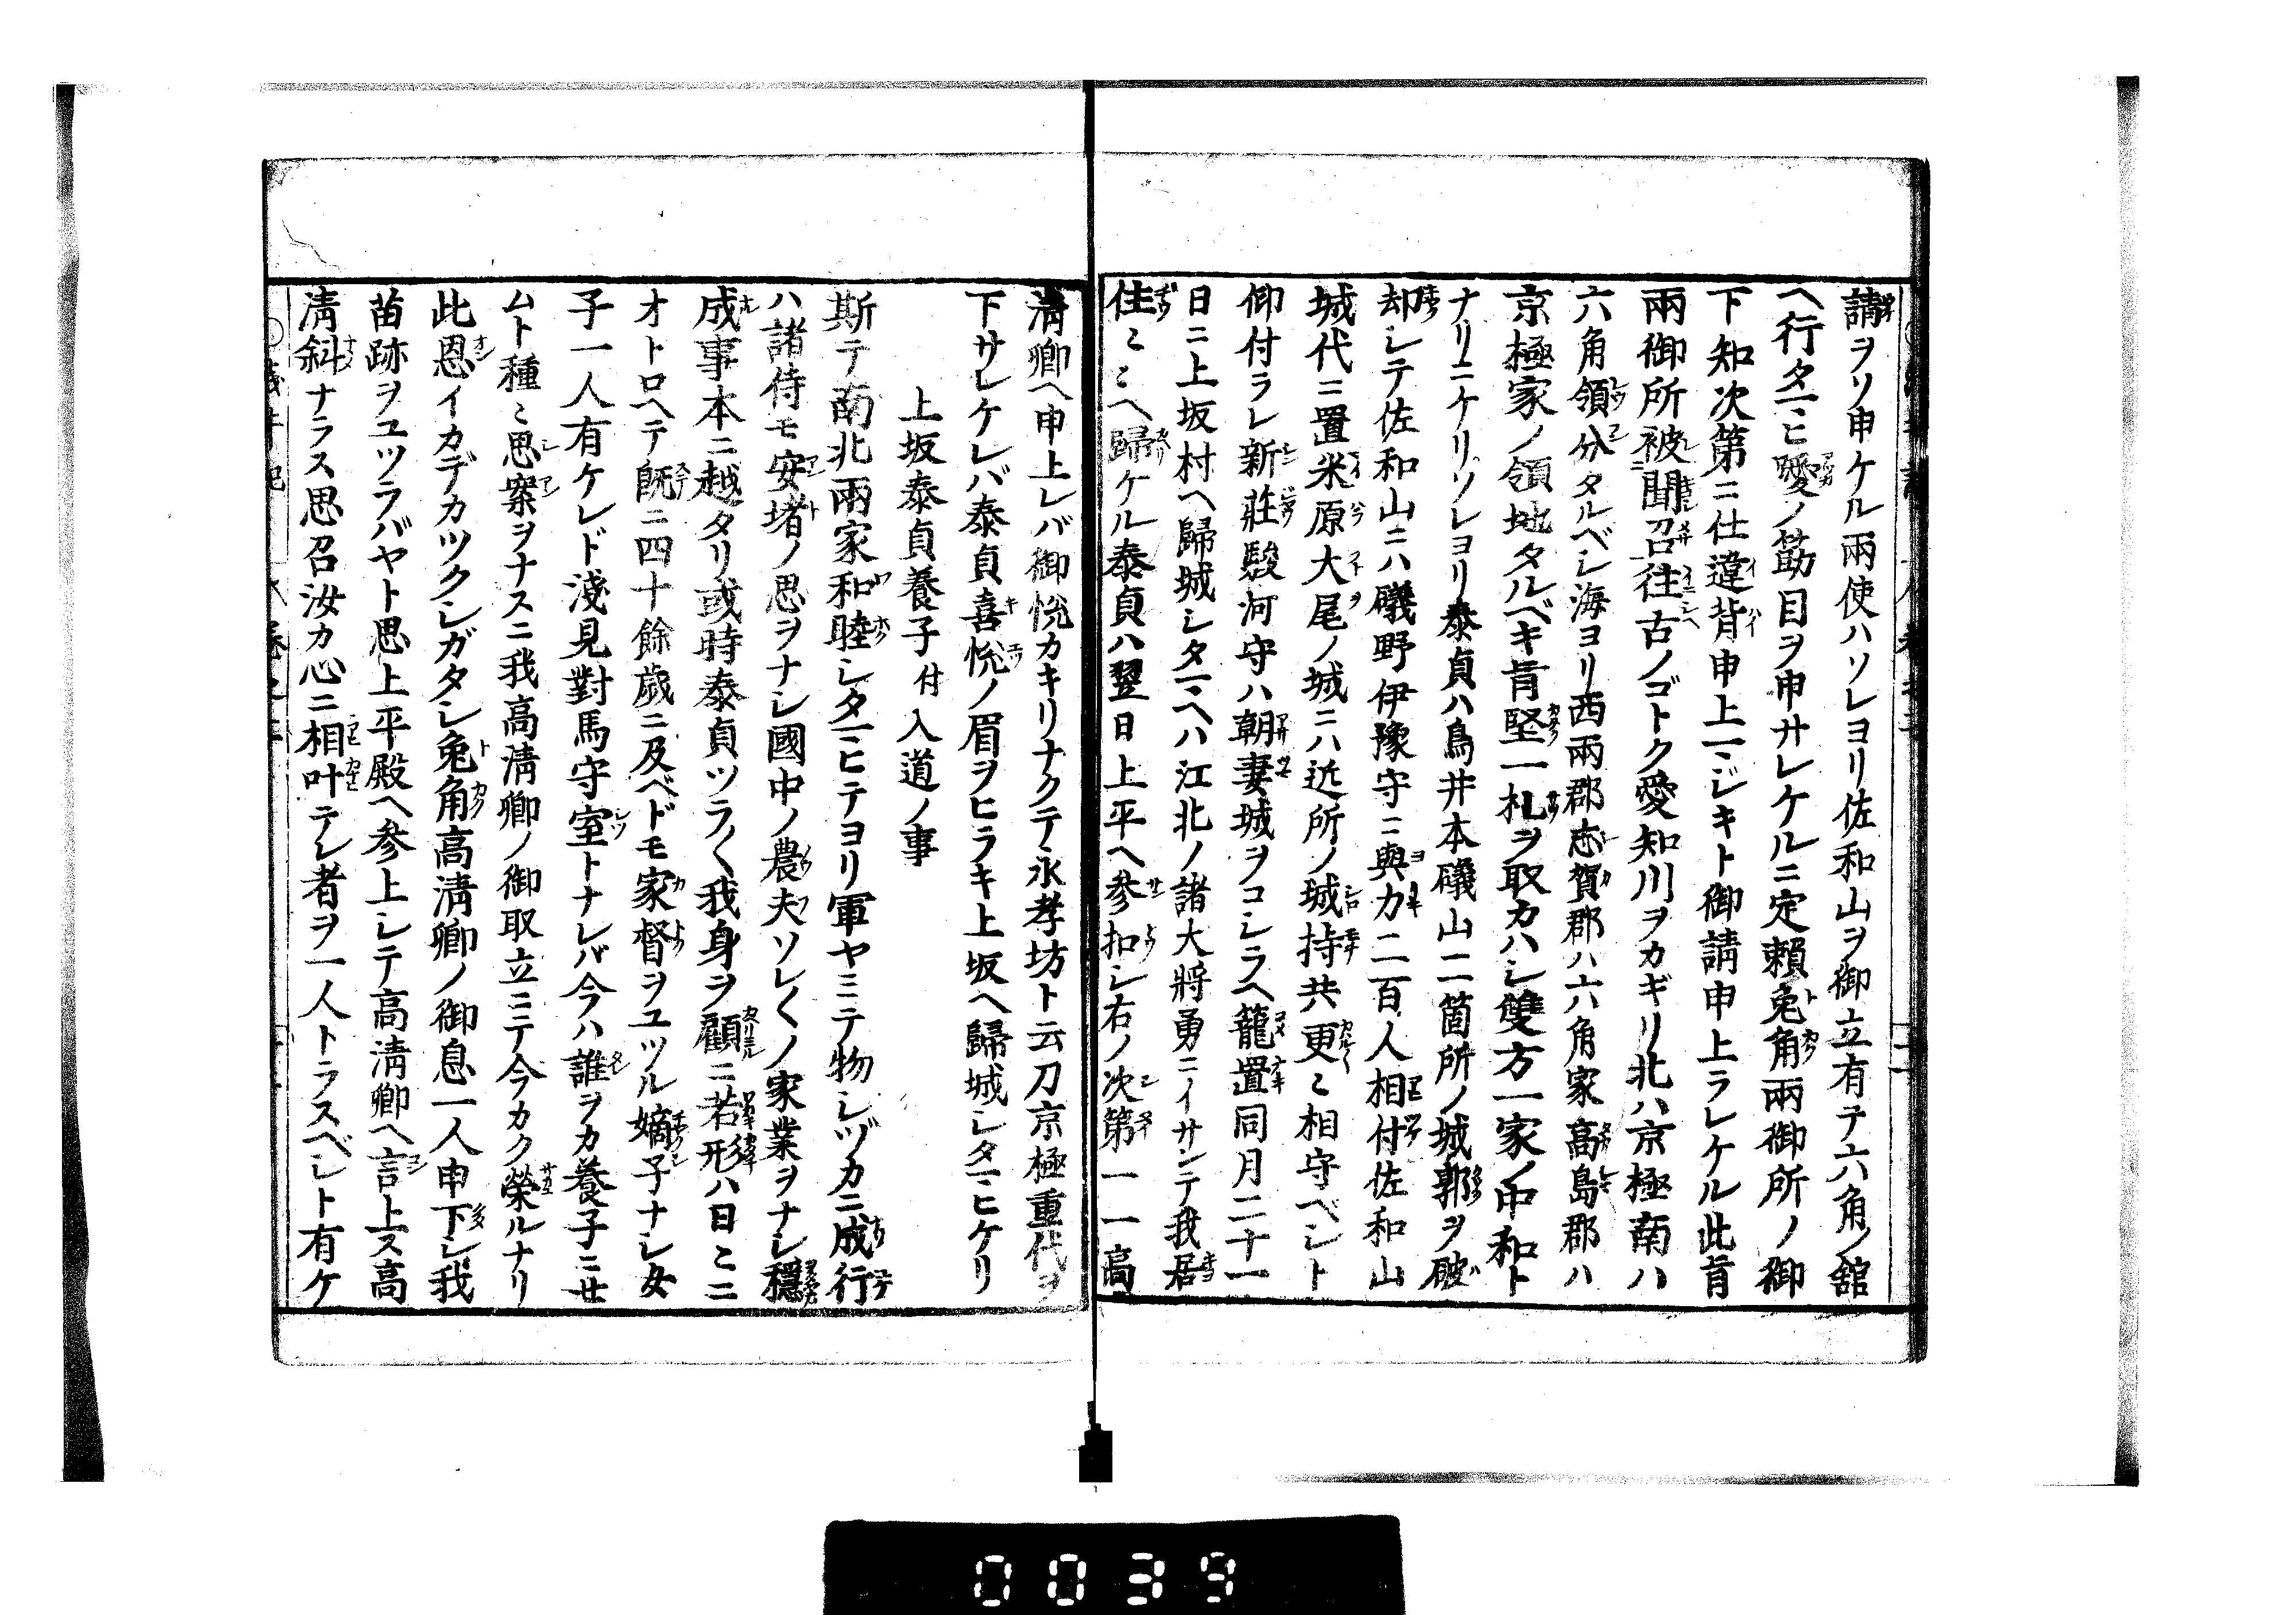 請ヲソ申ケル兩使ハソレヨリ佐和山ヲ御立有テ六角ノ舘
ヘ行タマヒ愛ノ筋目ヲ申サレケルニ定賴兎角兩御所ノ御
下知次第ニ仕違背申上マジキト御請申上ラレケル此旨
兩御所被聞召往古ノゴトク愛知川ヲカギリ北ハ京極南ハ
六角領分タルベシ海ヨリ西兩郡志賀郡ハ六角家高島郡ハ
京極家ノ領地タルベキ肯堅一札ヲ取カハシ雙方一家ノ中和ト
ナリニケリソレヨリ泰貞ハ鳥井本礒山二箇所ノ城郭ヲ破
却シテ佐和山ニハ礒野伊豫守ニ與力二百人相付佐和山
城代ニ置米原大尾ノ城ニハ近所ノ城持共更ミ相守ベシト
仰付ラレ新莊駿河守ハ朝妻城ヲコシラヘ籠置同月二十一
日ニ上坂村ヘ歸城シタマヘハ江北ノ諸大將勇ニイサンテ我居
住ミミヘ歸ケル泰貞ハ翌日上平ヘ參扣シ右ノ次第一一高
淸卿ヘ申上レバ御悅カキリナクテ永孝坊ト云刀京極重代ヲ
下サレケレバ泰貞喜悅ノ眉ヲヒラキ上坂ヘ歸城シタマヒケリ
上坂泰貞養子付入道ノ事
斯テ南北兩家和睦シタマヒテヨリ軍ヤミテ物シヅカニ成行
ハ諸侍モ安堵ノ思ヲナシ國中ノ農夫ソレ〱ノ家業ヲナシ穩
成事本ニ越タリ或時泰貞ツラ〱我身ヲ顧ニ若形ハ日ミニ
オトロヘテ既ニ四十餘歲ニ及ベドモ家督ヲユツル嫡子ナシ女
子一人有ケレド淺見對馬守室トナレバ今ハ誰ヲカ養子ニセ
ムト種ミ思案ヲナスニ我高淸卿ノ御取立ニテ今カク榮ルナリ
此恩イカデカツクシガタシ兎角高淸卿ノ御息一人申下シ我
苗跡ヲユツラバヤト思上平殿ヘ參上シテ高淸卿ヘ言上ス高
淸斜ナラス思召汝カ心ニ相叶テシ者ヲ一人トラスベシト有ケ
0039